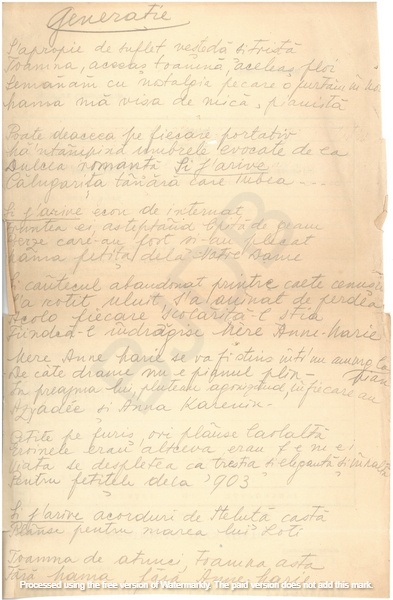 Generație
S'apropie de suflet vestedă și tristă
Toamna, aceeaș toamnă, aceleaș ploi
Semănăm cu nostalgia pe care o purtăm în
Mama mă visa de mică, pianistă
Poate deaceea pe fiecare portativ
Mă 'ntâmpină umbrele evocate de ea
Dulcea romanță Si j'arive
Călugărița tânără care iubea ---
Si j'arive ecou de internat
Fruntea ei, așteptând lipită de geam
care-au fost și-au plecat
Mama fetiță dela Notre Dame
Și cântecul abandonat printre caete cenușii
S'a rotit, uluit, s'a animat de perdea
Acolo fiecare școlăriță-l știa
Fiindcă-l îndrăgise Mère Anne-Marie
Mère Anne Marie se va fi stins într'un amurg
De câte drame nu e pianul plin
pian
În preajma lui, pluteau agonizând, în fiecare an
Azyadée și Anna Karenin.
Citite pe furiș, ori plânse laolaltă
Eroinele erau altceva erau femei
Viața se despletea ca trestia și elegantă și înaltă
Pentru fetițele dela "903"
Si j'arive acorduri de Heluță castă
Plânse pentru marea lui Loti
Toamna de atunci, toamna asta
Fără mama
Processed using the free version of Watermarkly. The paid version does not add this mark.